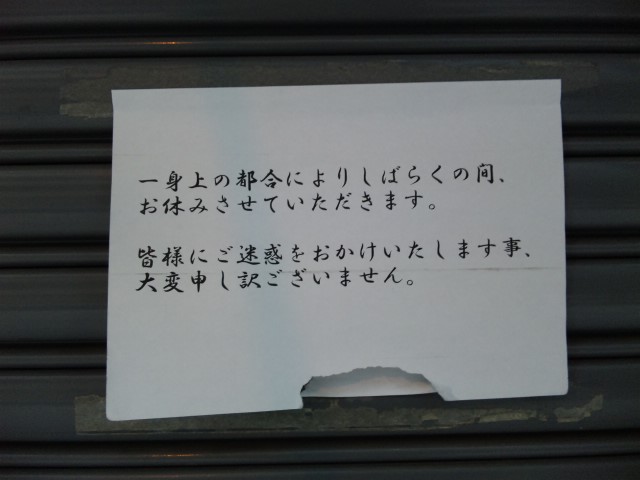 一身上の都合によりしばらくの間、
お休みさせていただきます。
皆様にご迷惑をおかけいたします事、
大変申し訳ございません。